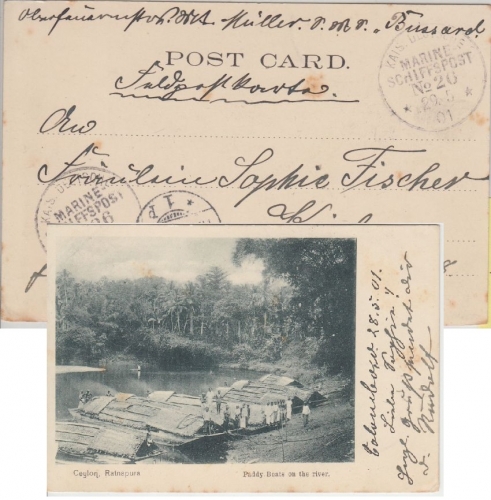 Müller. S. M. S. „Bussard.
POST CARD.
Feldpostkarte.
KAIS. DEUTSCHE
MARINE-
SCHIFFSPOST
No 26
29. 5
01
An
Fräulein Sophie Fischer
Kiel
MARINE-
SCHIFFSPOST
26
Ceylon, Ratnapura
Paddy Boats on the river.
Colombo. 28.5.01.
Liebe Sophie!
Herzl. Gruß sendet dir
d. Rudolf